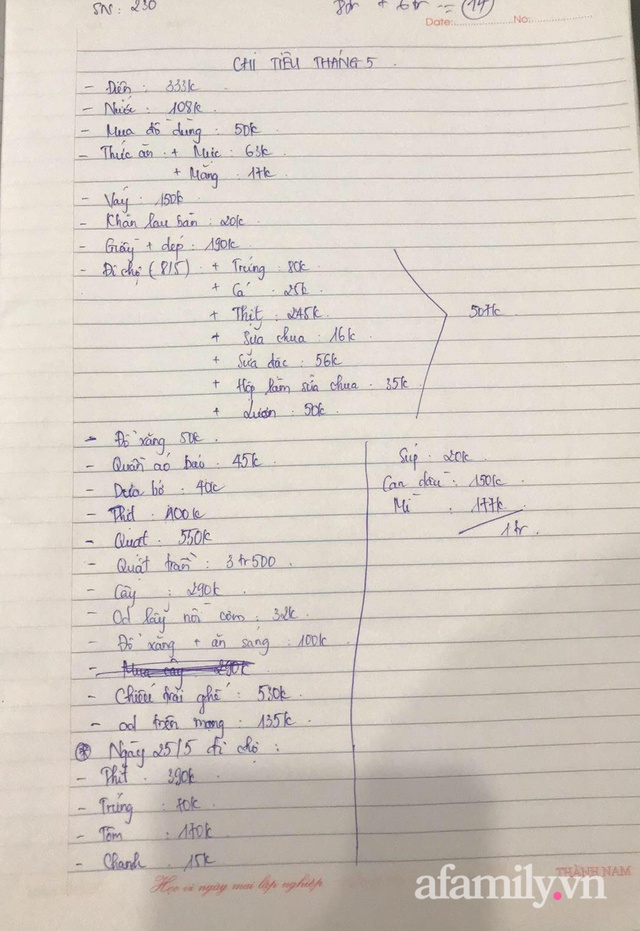 SN: 230
8tr + 6tr = 14
Date: No:
CHI TIÊU THÁNG 5.
- Điện : 333k
- Nước : 108k
- Mua đồ dùng : 50k
- Thức ăn : + Mực : 63k
+ Măng : 17k
- Váy : 150k
- Khăn lau bàn : 20k
- Giấy + dép : 190k
- Đi chợ (8/5) + Trứng : 80k
+ Cá : 25k
+ Thịt : 245k
+ Sữa chua : 16k
+ Sữa đặc : 56k
+ Hộp làm sữa chua : 35k
+ Lươn : 50k
507k
- Đổ xăng 50k.
- Quần áo bảo : 45k
- Dưa bở : 40k
- Thịt : 100k
- Quạt : 550k
- Quạt trần : 3tr500
- Cây : 290k
- Od lấy nồi cơm : 32k
- Đổ xăng + ăn sáng : 100k
- Mua cây : 290k
- Chiếu trải ghế : 530k
- od trên mạng : 135k
* Ngày 25/5 đi chợ :
- Thịt : 390k
- Trứng : 70k
- Tôm : 170k
- Chanh : 15k
Súp : 20k
Can dầu : 150k
Mì : 177k
1tr.
Học vì ngày mai lập nghiệp
THÀNH NAM
afamily.vn